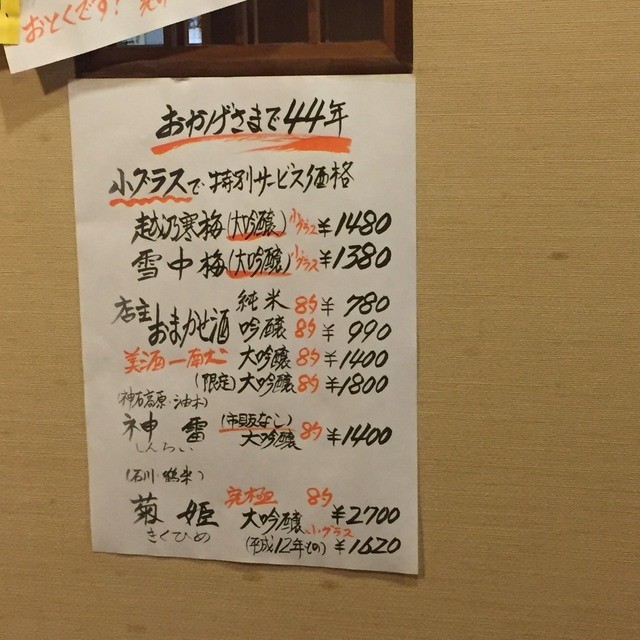 おとくです!
おかげさまで44年
小グラスで特別サービス価格
越乃寒梅(大吟醸)小グラス¥1480
雪中梅(大吟醸)小グラス¥1380
店主おまかせ酒 純米 8勺 ¥780
吟醸 8勺 ¥990
美酒一献 大吟醸 8勺 ¥1400
(限定)大吟醸 8勺 ¥1800
(神石高原・油木)
神雷 (市販なし)大吟醸 8勺 ¥1400
しんらい
(石川・鶴来)
菊姫 究極 大吟醸 8勺 ¥2700
きくひめ (平成12年もの) 小グラス ¥1620